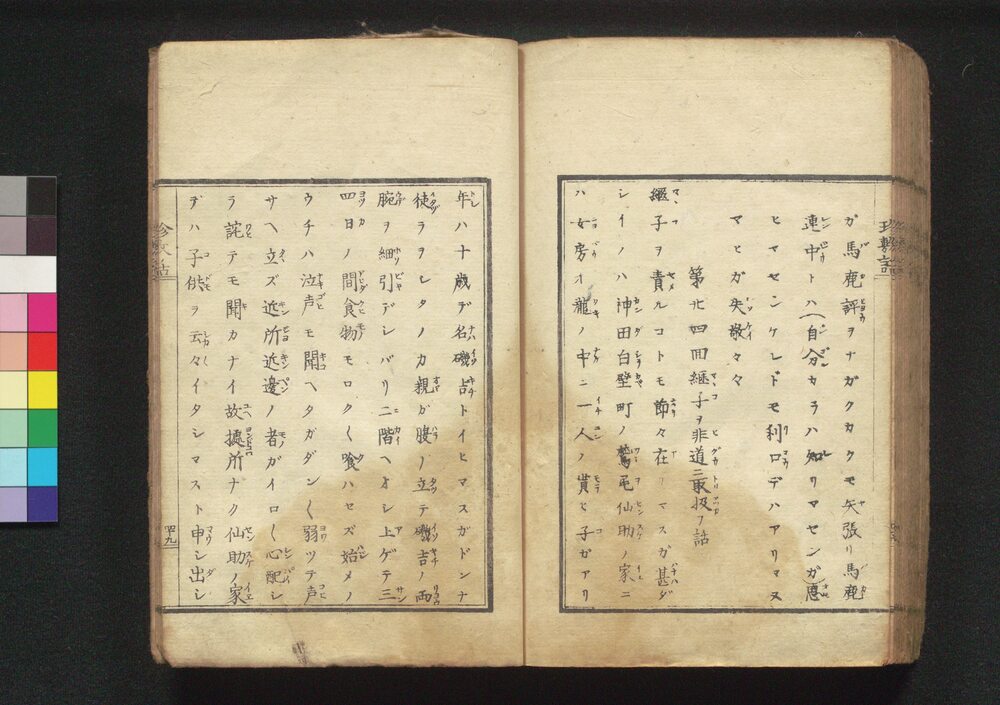 ガ馬鹿評ヲナガクカクモ矢張リ馬鹿
連中トハ(自分カラハ知リマセンガ)悪
ヒマセンケレドモ利口デハアリマヌ
マヒガ失敬々々
第廿四回継子ヲ非道ニ取扱フ話
継子ヲ責ルコトモ節々在リマスガ甚ダ
シイノハ神田白壁町ノ鬢仙助ノ家ニ
ハ女房オ瀧ノ中ニ一人ノ貰ヒ子ガアリ
年ハ十歳デ名磯吉トイヒマスガドンナ
使ヲヲシタノカ親ガ腹ノ立テ磯吉ノ両
腕ヲ細引デシバリ二階ヘオシ上ゲテ三
四日ノ間食物モロク〳〵喰ハセズ始メノ
ウチハ泣声モ聞ヘタガダン〳〵弱ツテ声
サヘ立ズ近所近邊ノ者ガイロ〳〵心配シ
ラ詫テモ聞カナイ故據所ナク仙助ノ家
ヂハ子供ヲ云々イタシマスト申シ出シ
珍教話
四十九